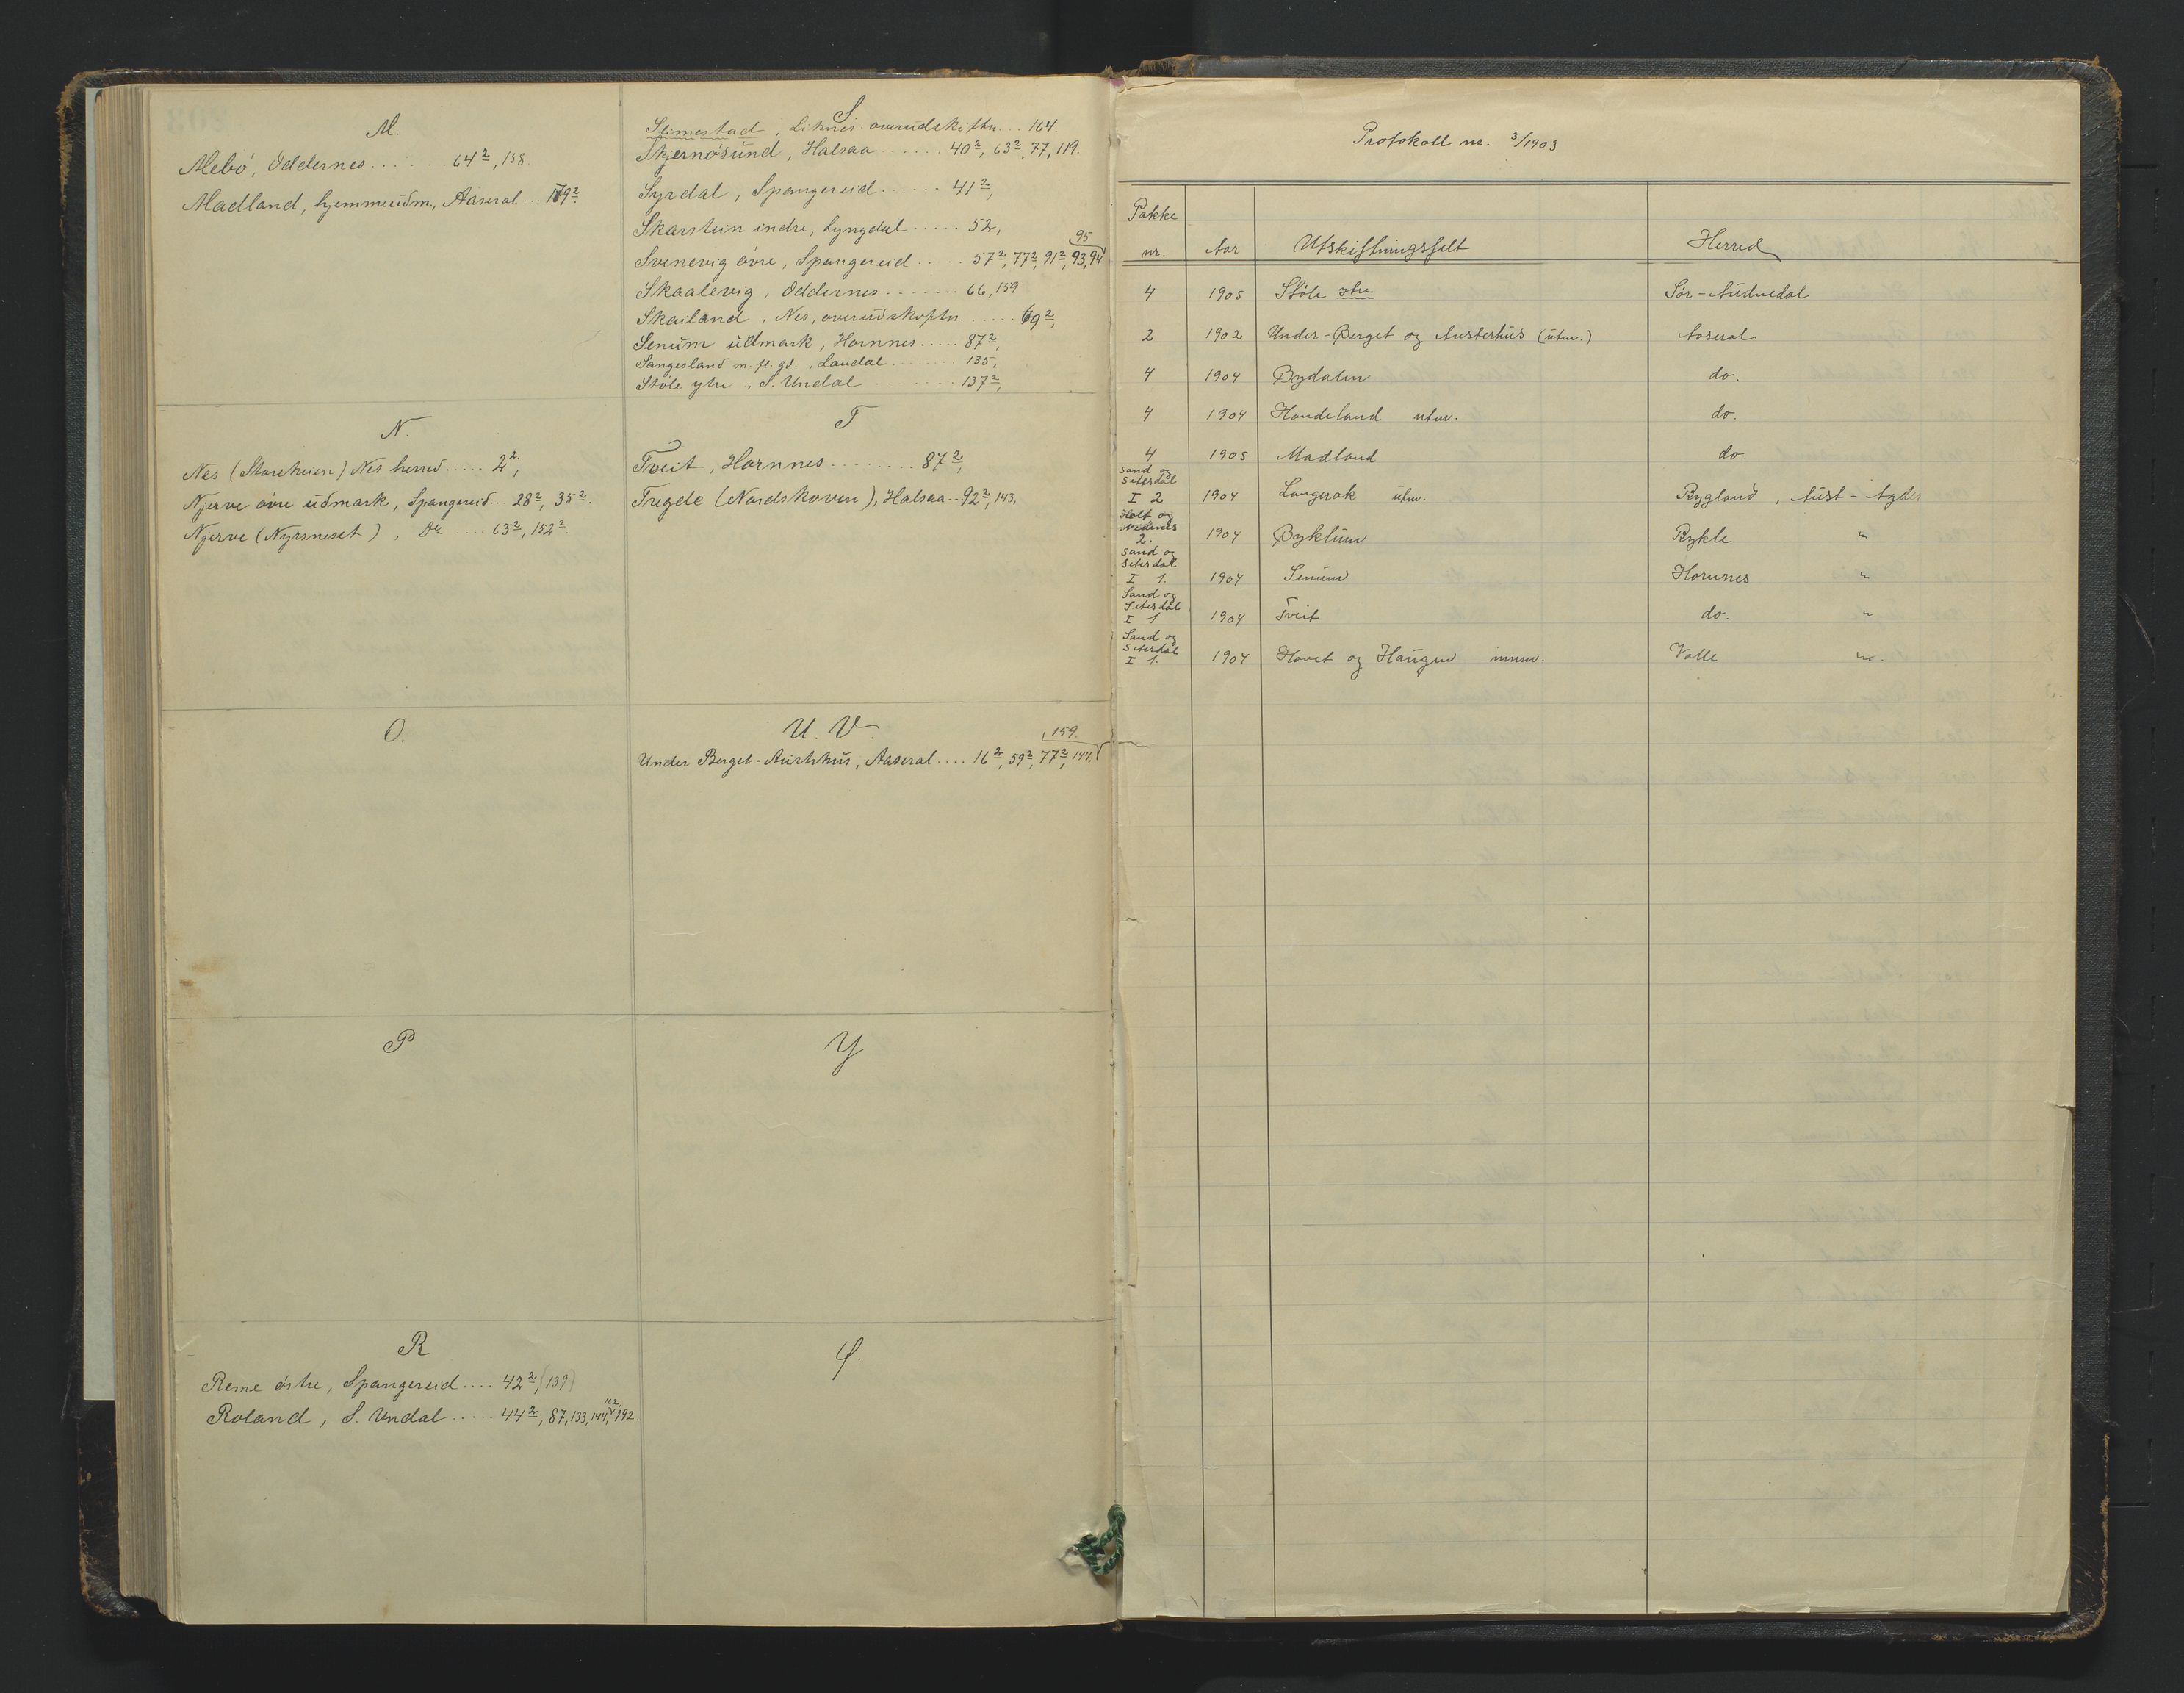 M.
Mebö, Oddernes ....... 64², 158.
Madland, hjemmeudm, Aaseral ... 179².
N.
Nes (Storeheien) Nes herred ..... 2²,
Njerve övre udmark, Spangereid ... 28², 35².
Njerve (Nyrsneset), Do .... 63², 152².
O.
P
R
Reme östre, Spangereid .... 42², (139)
Roland, S. Undal ..... 44², 87, 133, 144, 162, 192.
S
Stimestad, Lihnes overudskiftn... 164.
Skjernøsund, Halsaa ...... 40², 63², 77, 119.
Syrdal, Spangereid ...... 41²,
Skarstein indre, Lyngdal ..... 52,
Svenevig övre, Spangereid ..... 57², 77², 91², 93, 94, 95
Skaalevig, Oddernes ....... 66, 159
Skailand, Nes, overudskiftn. ..... 69²,
Senum udmark, Hornnes ..... 87²,
Sangesland m. fl. gd., Laudal ........ 135,
Støle ytre, S. Undal ........ 137²,
T
Tveit, Hornnes ........ 87²,
Tregde (Nordskoven), Halsaa -- 92², 143,
U. V.
Under Berget-Austhus, Aaseral .... 16², 59², 77², 144, 159.
Y
Protokoll nr. 3/1903
Pakke nr. Aar Utskiftningsfelt Herred
4 1905 Støle ytre Sør-Audnedal
2 1902 Under-Berget og Austerhus (utm.) Aaseral
4 1904 Bydalen do.
4 1904 Hondeland utm. do.
4 1905 Madland do.
Sand og Setesdal I 2 1904 Langerak utm. Bygland, Aust-Agder
Holt og Nedenes 2. 1904 Byklum Bykle "
Sand og Setesdal I 1. 1904 Senum Hornnes "
Sand og Setesdal I 1 1904 Tveit do. "
Sand og Setesdal I 1. 1904 Hovet og Haugen innm. Valle "